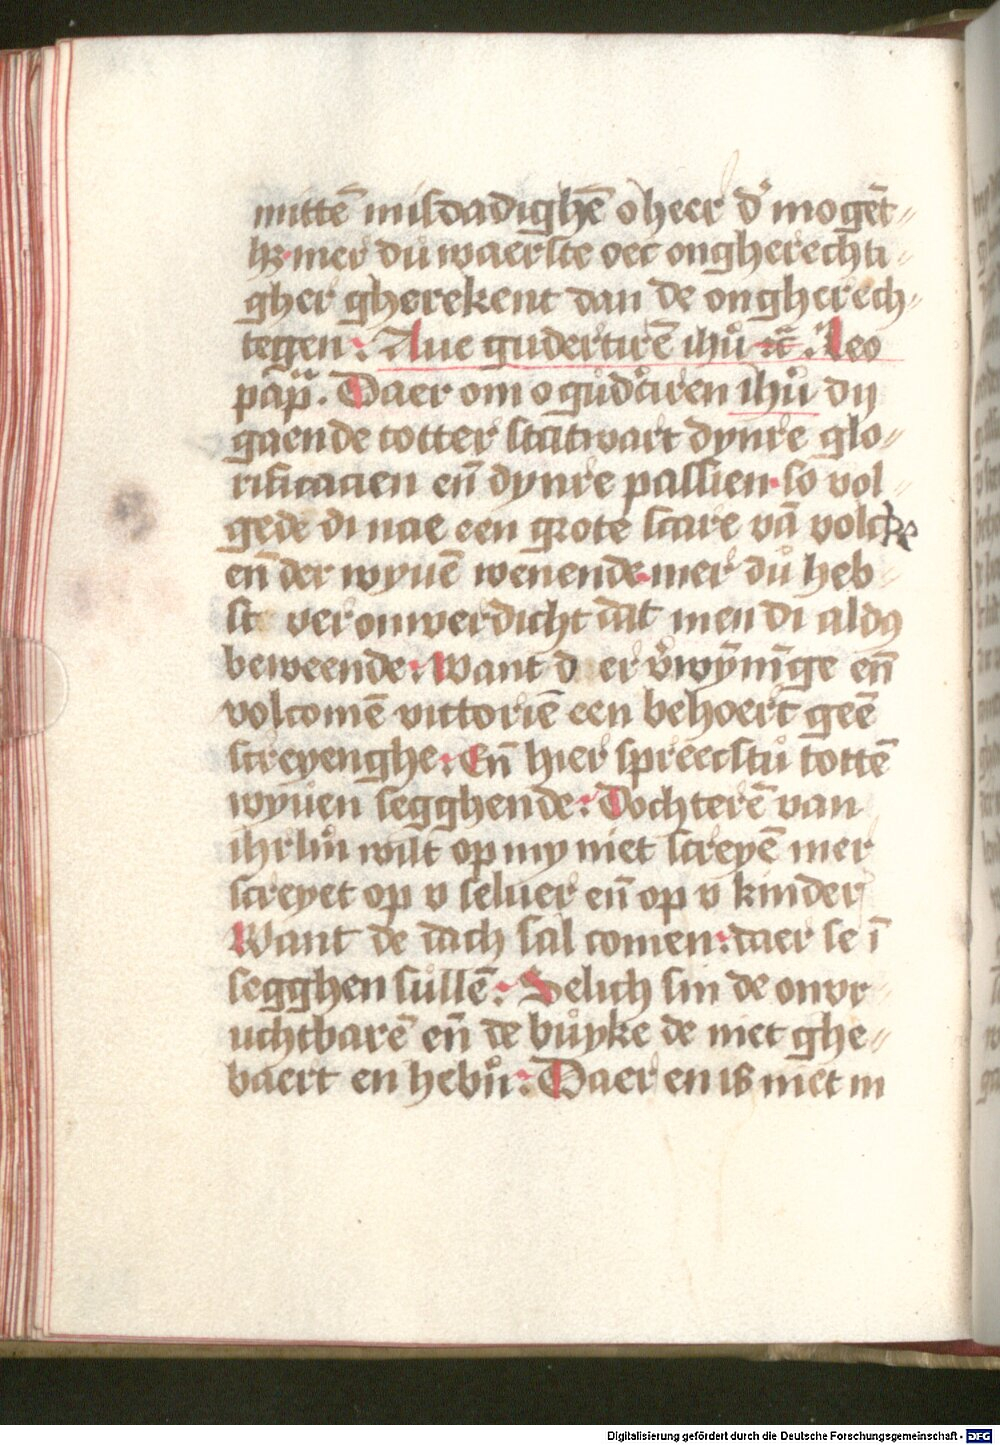 mittē misdadighē o heer d' mogēt-
h3 mer du waerste oec ongherechti-
gher gherekent dan de ongherech-
tegen: Aue gudertirē ihu̇ rc̄. Leo
pap̄. Daer om o gůdtiren ihů dy
gaende totter statwart dynre glo-
rificacien en̄ dynre passien so vol-
gede di nae een grote scare vā volcke
en̄ der wyuē wenende mer dů heb-
st veronwerdicht dat men di aldꝰ
beweende: Want d er v̊wȳnīge en̄
volcomē victoriē een behoert geē
screyenghe: En̄ hier spreecstů tottē
wyuen segghende: Dochterē van
ihrlm̄ wilt op my niet screyē mer
screyet op v seluer en̄ op v kinder
Want de dach sal comen: daer se ī
segghen sůllē: Selich sin de onvr-
uchtbarē en̄ de bůyke de niet ghe-
baert en hebn̄: Daer en is niet in
Digitalisierung gefördert durch die Deutsche Forschungsgemeinschaft - DFG